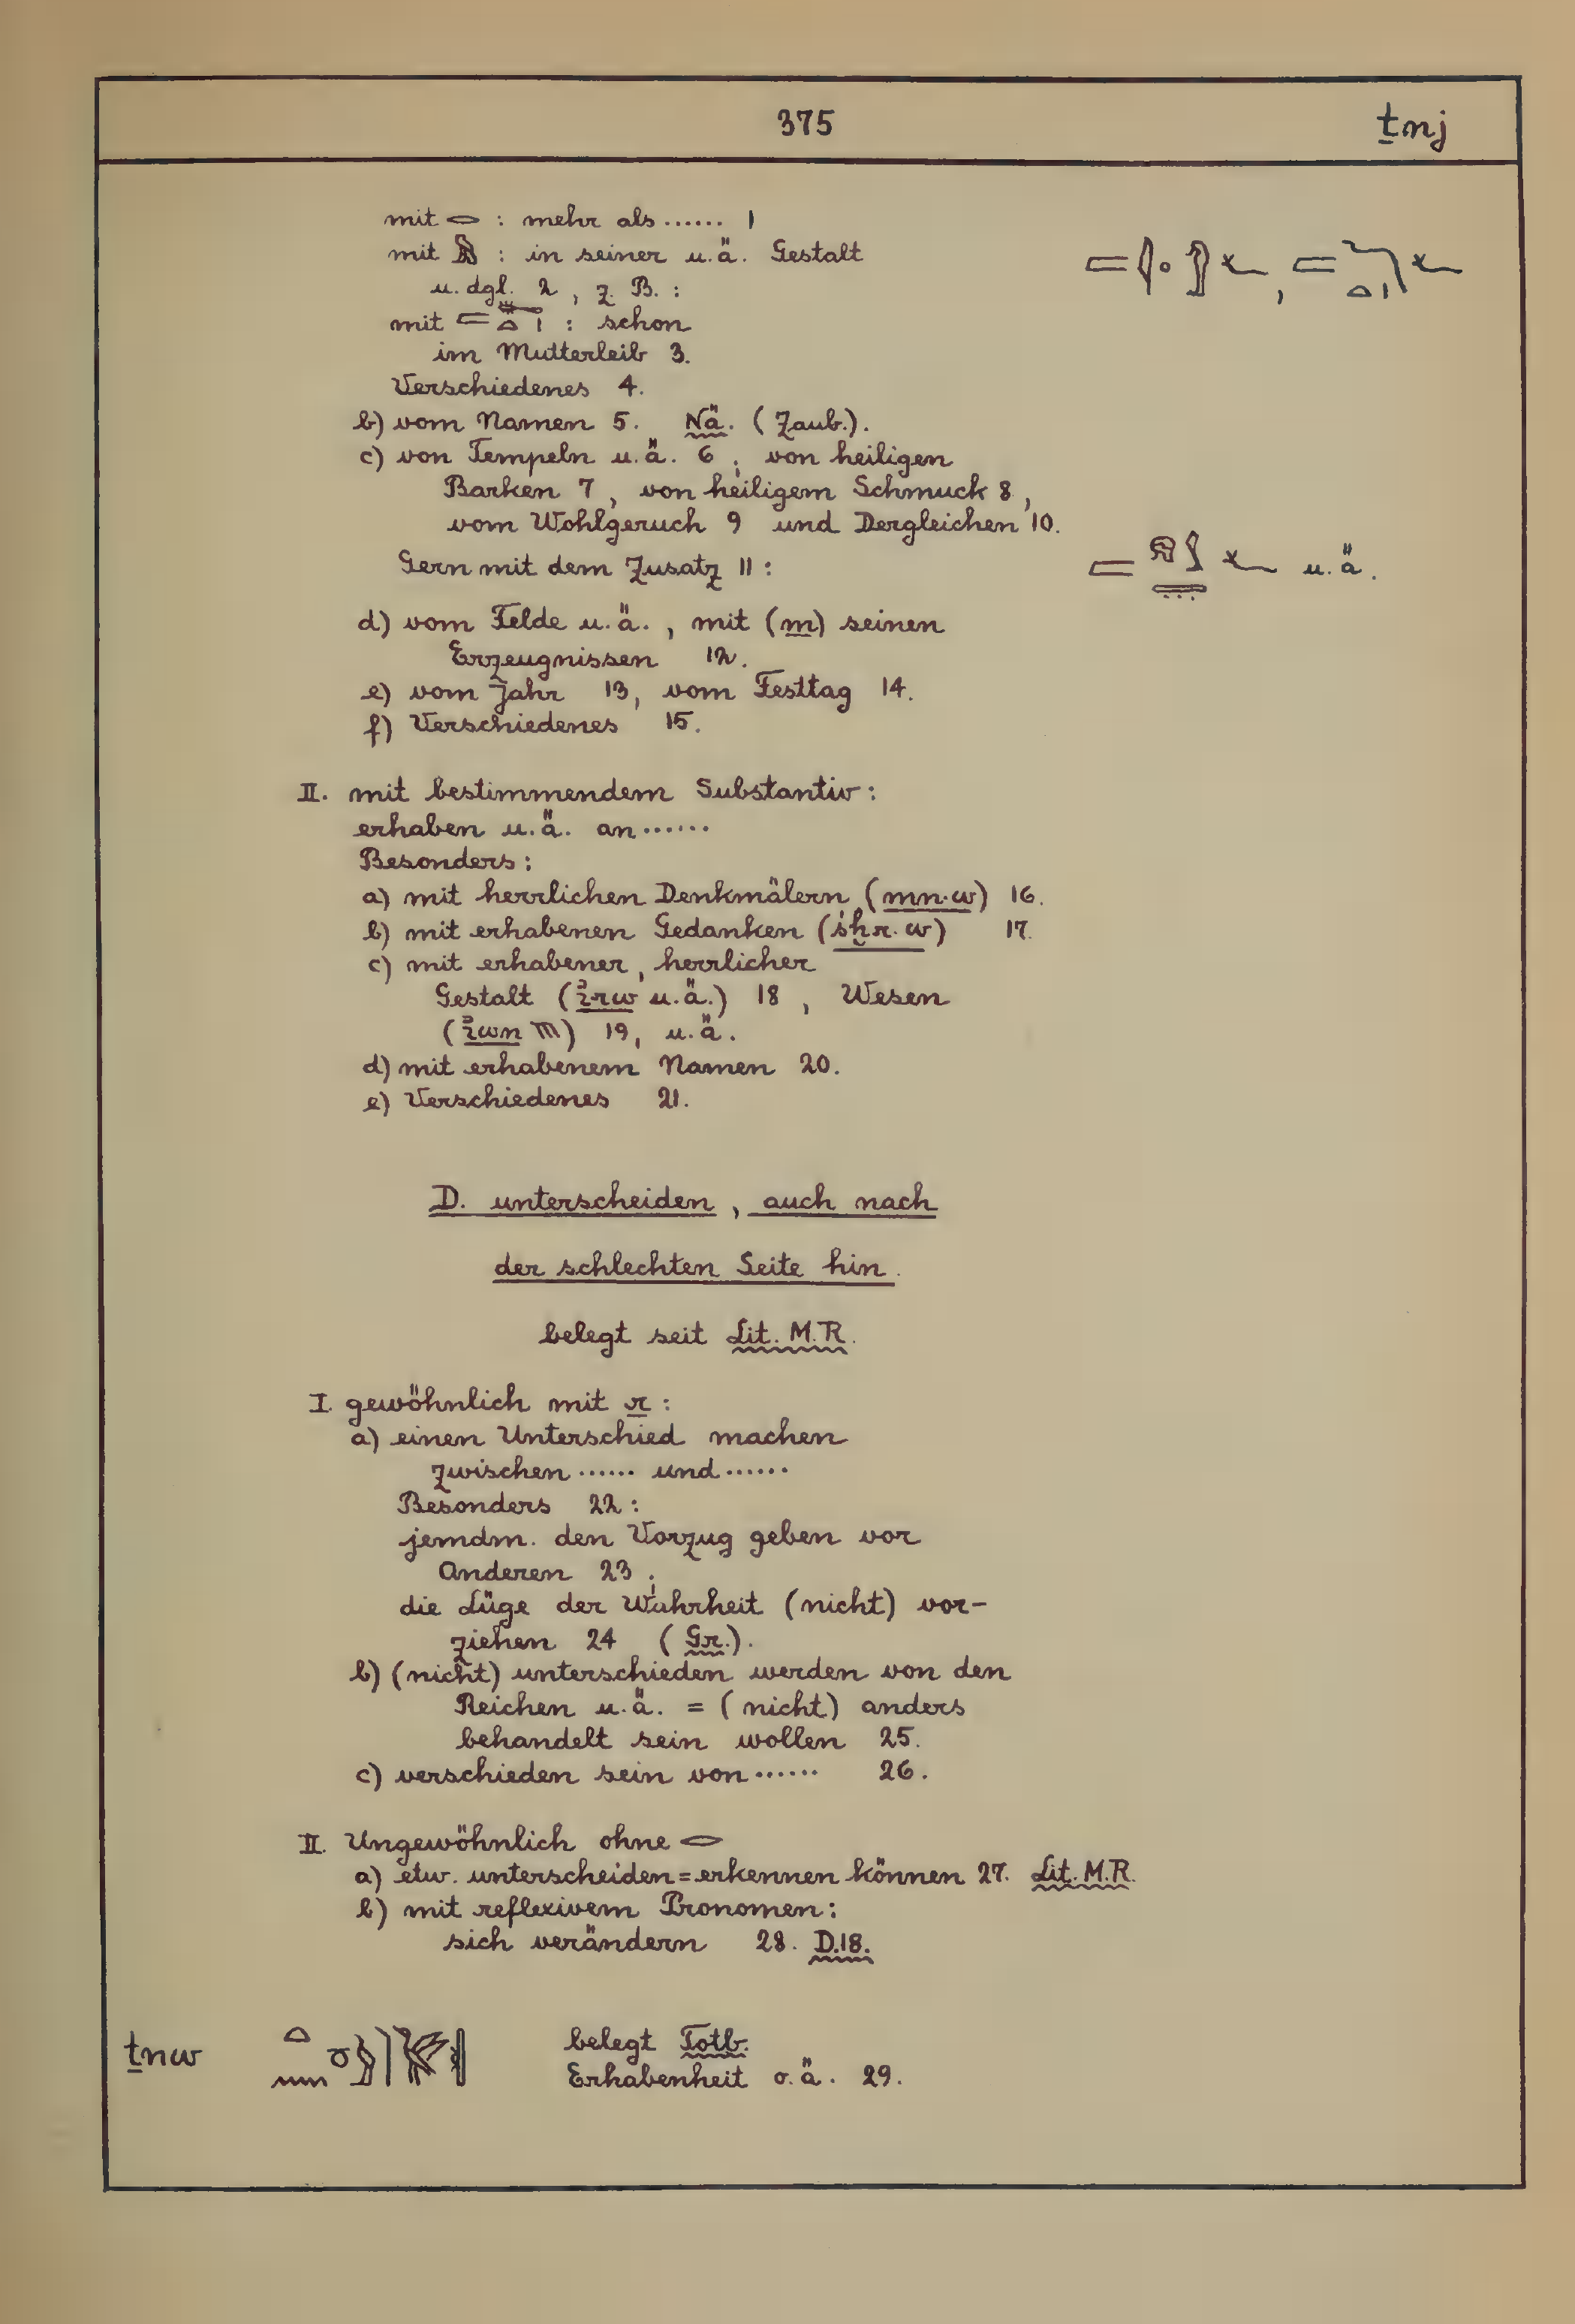 375 ṯnj
mit 𓂋 : mehr als ...... 1
mit 𓅓 : in seiner u.ä. Gestalt
u. dgl. 2 , z. B. :
mit : schon
im Mutterleib 3.
Verschiedenes 4.
b) vom Namen 5. Nä. (Zaub.).
c) von Tempeln u.ä. 6 ; von heiligen
Barken 7 , von heiligem Schmuck 8 ,
vom Wohlgeruch 9 und Dergleichen 10.
Gern mit dem Zusatz 11 : u.ä.
d) vom Felde u.ä. , mit (m) seinen
Erzeugnissen 12.
e) vom Jahr 13, vom Festtag 14.
f) Verschiedenes 15.
II. mit bestimmendem Substantiv :
erhaben u.ä. an ......
Besonders :
a) mit herrlichen Denkmälern (mn·w) 16.
b) mit erhabenen Gedanken (śḫr·w) 17.
c) mit erhabener , herrlicher
Gestalt (ꞽrw u.ä.) 18 , Wesen
(ꞽwn 𓋱) 19, u.ä.
d) mit erhabenem Namen 20.
e) Verschiedenes 21.
D. unterscheiden , auch nach
der schlechten Seite hin.
belegt seit Lit. M.R.
I. gewöhnlich mit r :
a) einen Unterschied machen
zwischen ...... und ......
Besonders 22 :
jemdm. den Vorzug geben vor
Anderen 23 ;
die Lüge der Wahrheit (nicht) vor-
ziehen 24 (Gr.).
b) (nicht) unterschieden werden von den
Reichen u.ä. = (nicht) anders
behandelt sein wollen 25.
c) verschieden sein von ...... 26.
II. Ungewöhnlich ohne 𓂋
a) etw. unterscheiden = erkennen können 27. Lit. M.R.
b) mit reflexivem Pronomen :
sich verändern 28. D.18.
ṯnw belegt Totb.
Erhabenheit o.ä. 29.